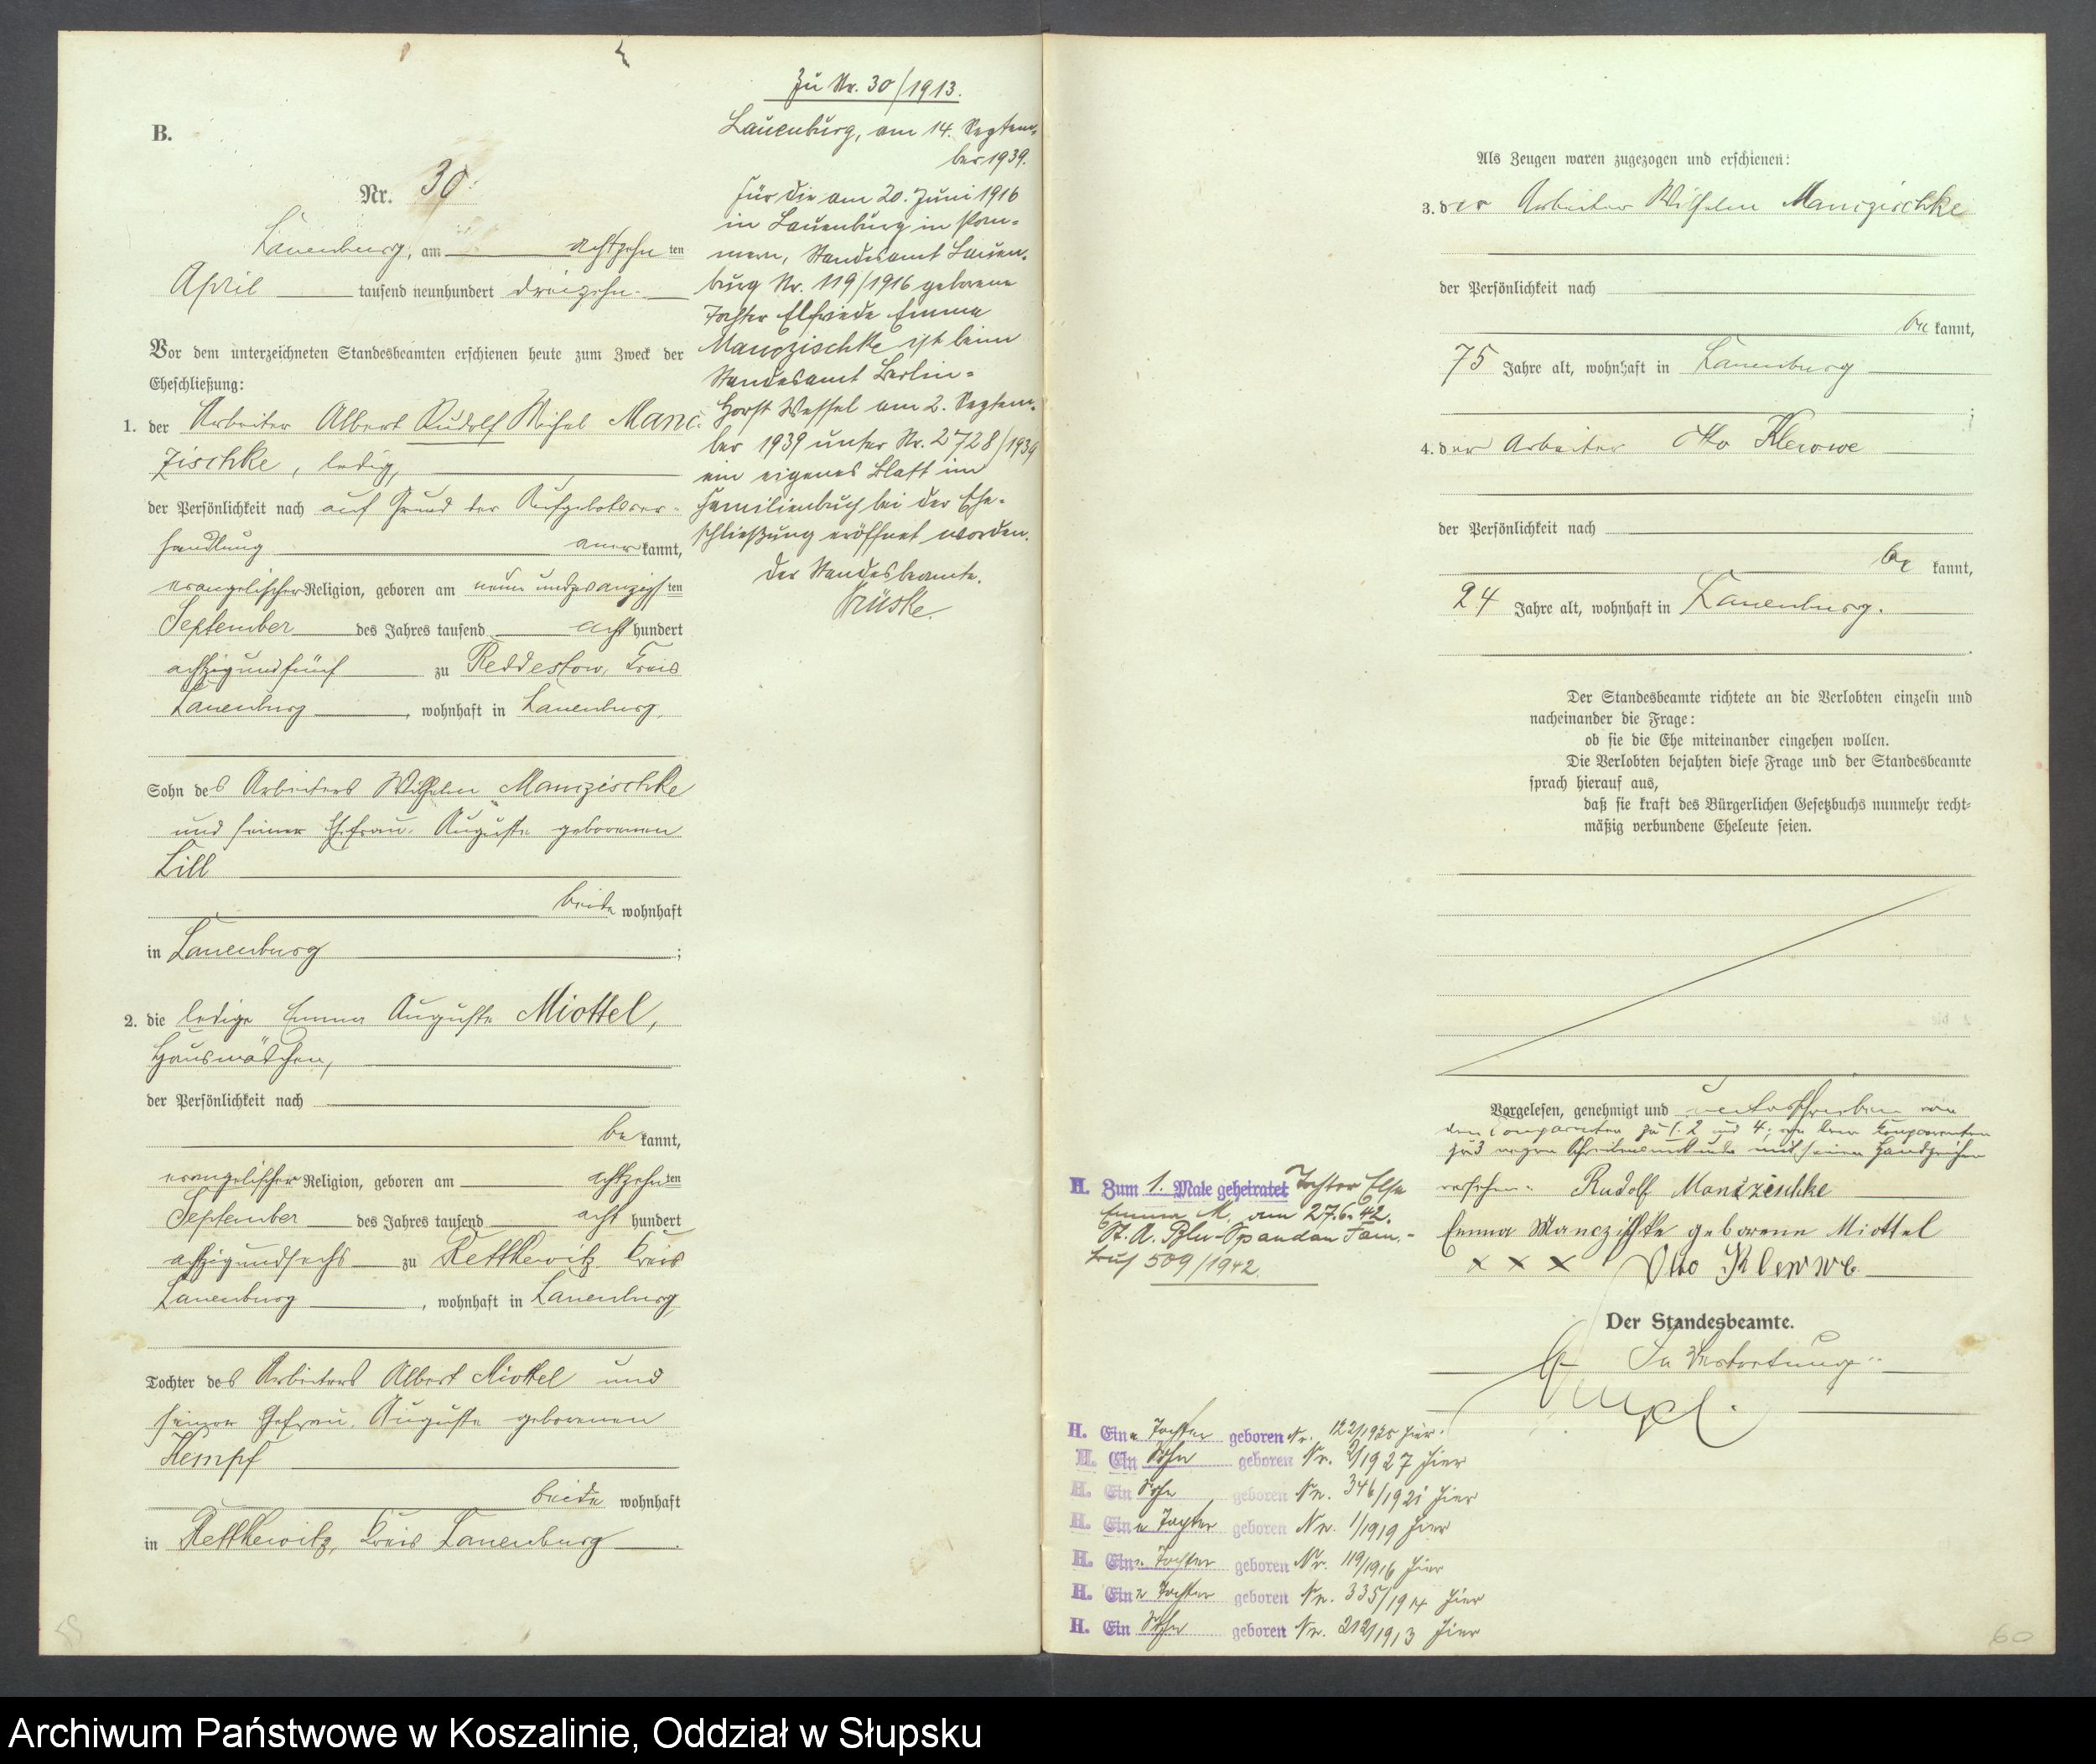 B.
Nr. 30.
Lauenburg, am achtzehn ten
April tausend neunhundert dreizehn.
Vor dem unterzeichneten Standesbeamten erschienen heute zum Zweck der
Eheschließung:
1. der Arbeiter Albert Rudolf Michel Manc-
zischke, ledig,
der Persönlichkeit nach auf Grund der Aufgebotsver-
handlung aner kannt,
evangelischer Religion, geboren am neun und zwanzigsten
September des Jahres tausend acht hundert
achtzigundfünf zu Reddestow, Kreis
Lauenburg, wohnhaft in Lauenburg,
Sohn des Arbeiters Wilhelm Manczischke
und seiner Ehefrau Auguste geborenen
Lill
beide wohnhaft
in Lauenburg ;
2. die ledige Emma Auguste Miottel,
Hausmädchen,
der Persönlichkeit nach
be kannt,
evangelischer Religion, geboren am achtzehn ten
September des Jahres tausend acht hundert
achtzigundsechs zu Rettkewitz Kreis
Lauenburg, wohnhaft in Lauenburg
Tochter des Arbeiters Albert Miottel und
seiner Ehefrau Auguste geborenen
Kempf
beide wohnhaft
in Rettkewitz, Kreis Lauenburg.
Zu Nr. 30/1913.
Lauenburg, am 14. Septem-
ber 1939.
Für die am 20. Juni 1916
in Lauenburg in Pom-
mern, Standesamt Lauen-
burg Nr. 119/1916 geborene
Tochter Elfriede Emma
Manczischke ist beim
Standesamt Berlin-
Horst Wessel am 2. Septem-
ber 1939 unter Nr. 2728/1939
ein eigenes Blatt im
Familienbuch bei der Ehe-
schließung eröffnet worden.
Der Standesbeamte.
Als Zeugen waren zugezogen und erschienen:
3. der Arbeiter Wilhelm Manczischke
der Persönlichkeit nach
be kannt,
75 Jahre alt, wohnhaft in Lauenburg
;
4. der Arbeiter Otto Klewwe
der Persönlichkeit nach
be kannt,
24 Jahre alt, wohnhaft in Lauenburg.
Der Standesbeamte richtete an die Verlobten einzeln und
nacheinander die Frage:
ob sie die Ehe miteinander eingehen wollen.
Die Verlobten bejahten diese Frage und der Standesbeamte
sprach hierauf aus,
daß sie kraft des Bürgerlichen Gesetzbuchs nunmehr recht-
mäßig verbundene Eheleute seien.
Vorgelesen, genehmigt und unterschrieben von
den Comparenten zu 1. 2 und 4; von dem Comparenten
zu 3 wegen Schreibensunkunde mit seinem Handzeichen
versehen. Rudolf Manczischke
Emma Manczischke geborene Miottel
x x x Otto Klewwe.
Der Standesbeamte.
In Vertretung
H. Zum 1. Male geheiratet Tochter Else
Emma M. am 27.6.42.
St. A. Bln-Spandau Fam.-
buch 509/1942.
H. Eine Tochter geboren Nr. 122/1925 hier.
H. Ein Sohn geboren Nr. 2/1927 hier
H. Ein Sohn geboren Nr. 346/1921 hier
H. Eine Tochter geboren Nr. 1/1919 hier
H. Eine Tochter geboren Nr. 119/1916 hier
H. Eine Tochter geboren Nr. 335/1914 hier
H. Ein Sohn geboren Nr. 212/1913 hier
60
Archiwum Państwowe w Koszalinie, Oddział w Słupsku